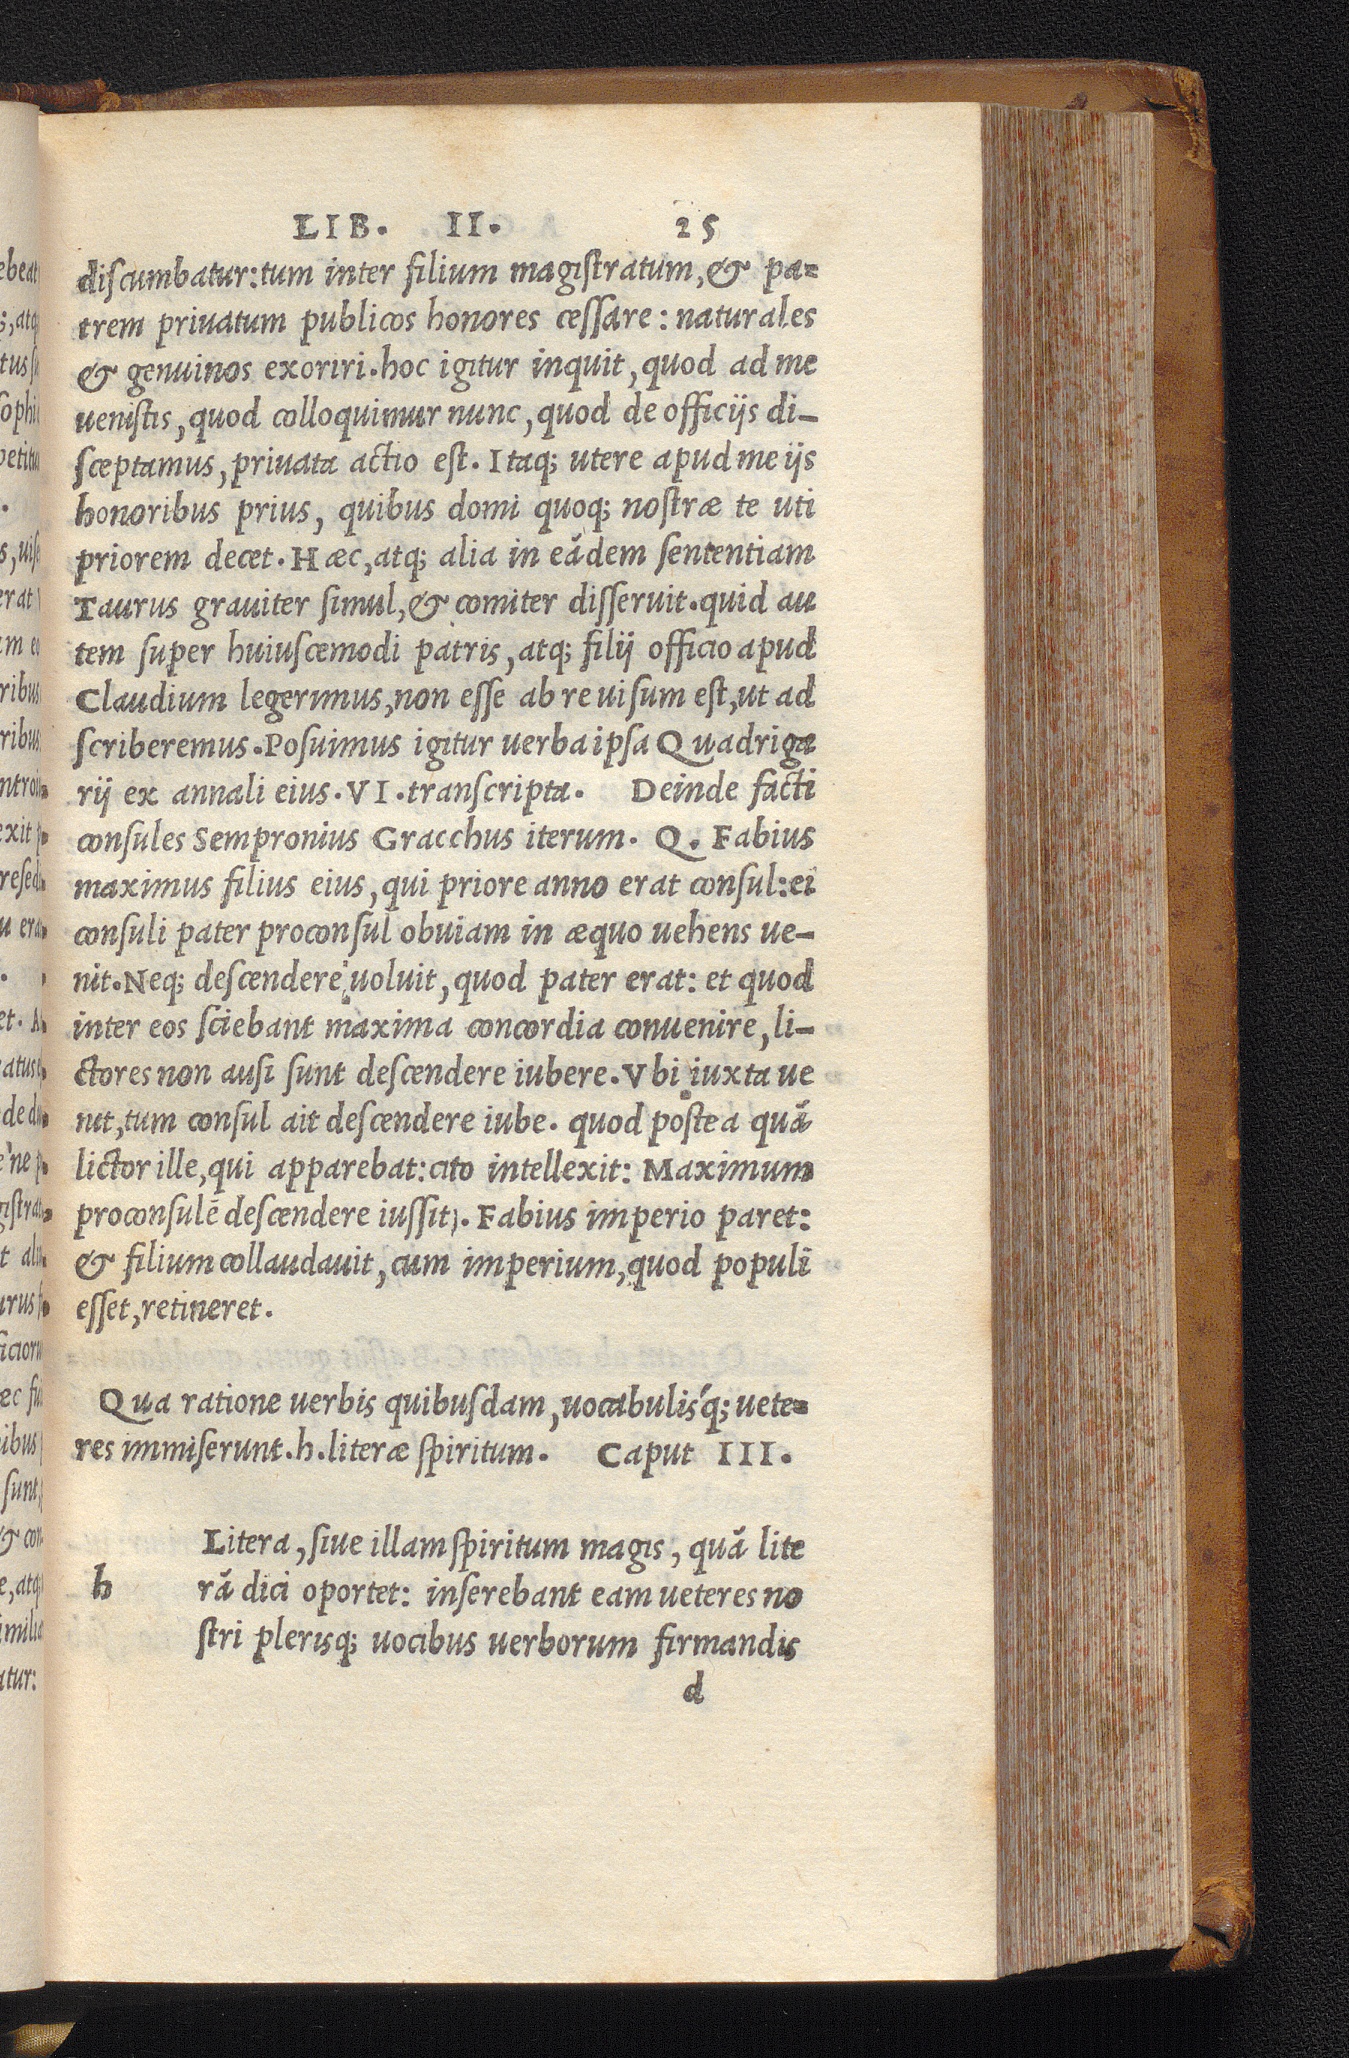 LIB. II. 25
discumbatur:tum inter filium magistratum, & pa-
trem priuatum publicos honores cessare: naturales
& genuinos exoriri.hoc igitur inquit, quod ad me
uenistis, quod colloquimur nunc, quod de officijs di-
sceptamus, priuata actio est. Itaq; utere apud me ijs
honoribus prius, quibus domi quoq; nostræ te uti
priorem decet. Hæc, atq; alia in eādem sententiam
Taurus grauiter simul, & comiter disseruit.quid au
tem super huiuscemodi patris, atq; filij officio apud
Claudium legerimus, non esse ab re uisum est, ut ad
scriberemus. Posuimus igitur uerba ipsa Quadriga
rij ex annali eius. VI. transcripta. Deinde facti
consules Sempronius Gracchus iterum. Q. Fabius
maximus filius eius, qui priore anno erat consul: ei
consuli pater proconsul obuiam in æquo uehens ue-
nit. Neq; descendere uoluit, quod pater erat: et quod
inter eos sciebant maxima concordia conuenire, li-
ctores non ausi sunt descendere iubere. Vbi iuxta ue
nit, tum consul ait descendere iube. quod postea quā
lictor ille, qui apparebat: cito intellexit: Maximum
proconsulē descendere iussit). Fabius imperio paret:
& filium collaudauit, cum imperium, quod populi
esset, retineret.
Qua ratione uerbis quibusdam, uocabulis'q; uete-
res immiserunt. h. literæ spiritum. Caput III.
Litera, siue illam spiritum magis, quā lite
h rā dici oportet: inserebant eam ueteres no
stri plerisq; uocibus uerborum firmandis
d